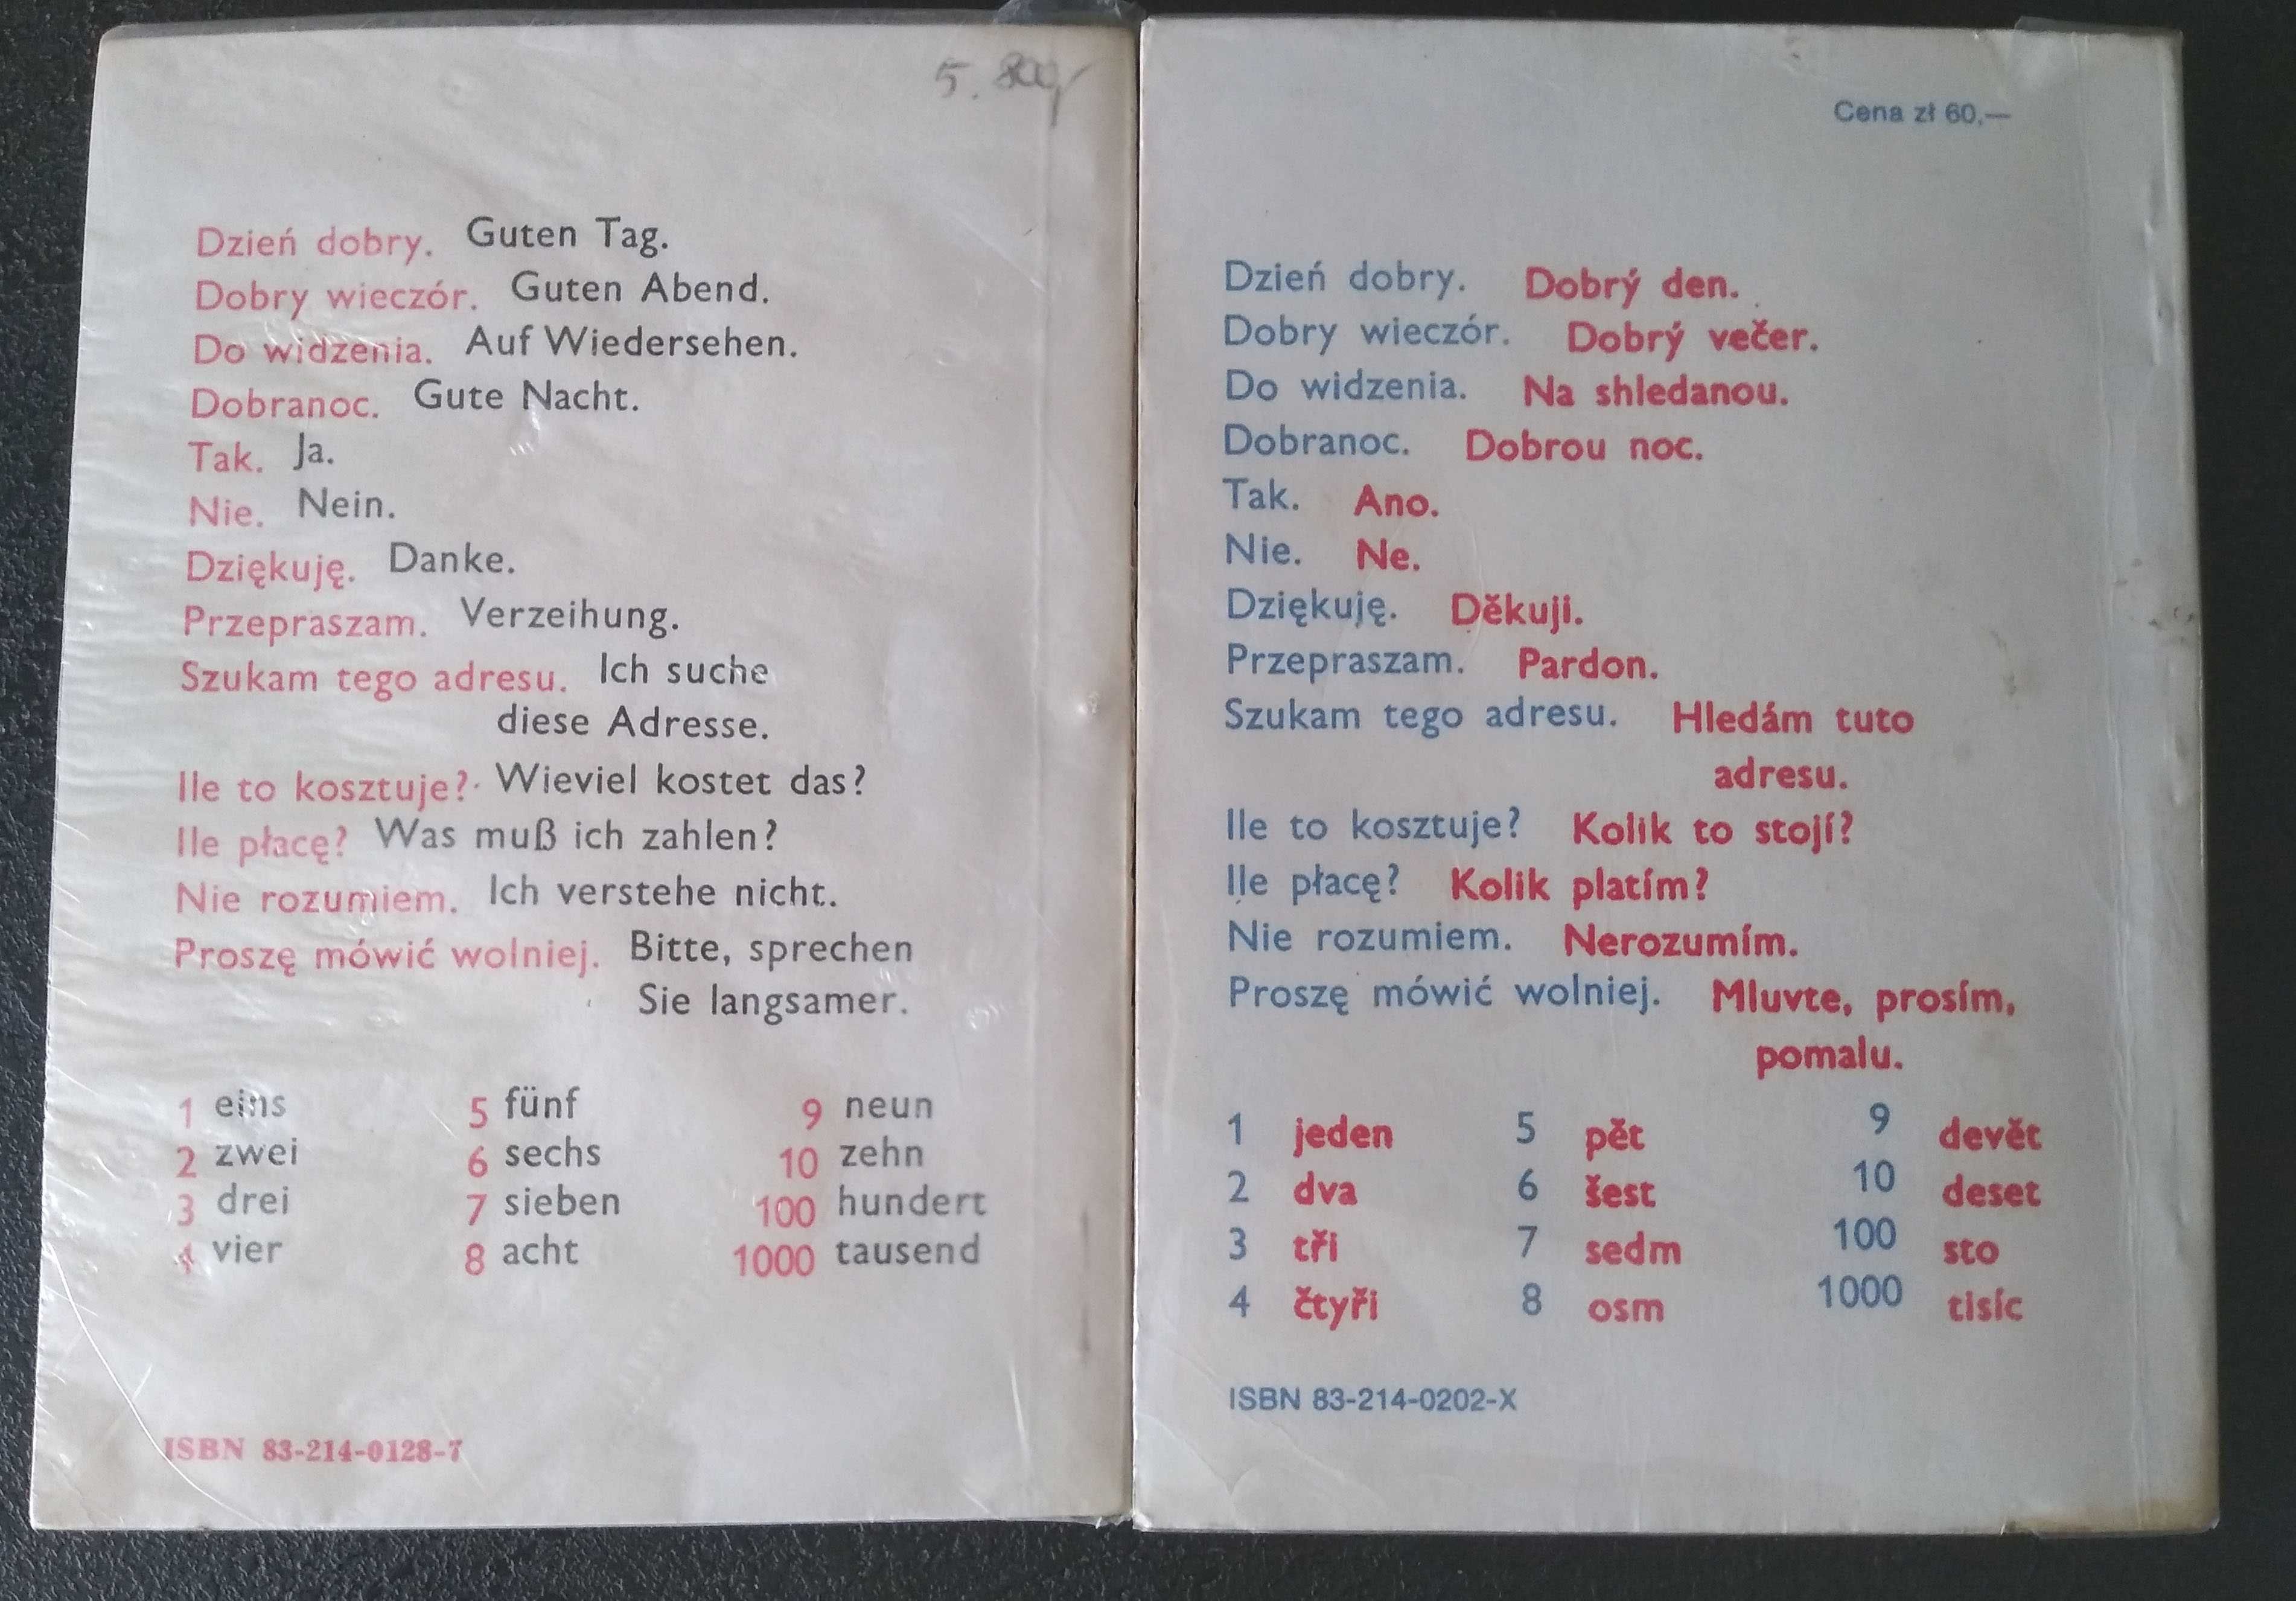 5.
Dzień dobry. Guten Tag.
Dobry wieczór. Guten Abend.
Do widzenia. Auf Wiedersehen.
Dobranoc. Gute Nacht.
Tak. Ja.
Nie. Nein.
Dziękuję. Danke.
Przepraszam. Verzeihung.
Szukam tego adresu. Ich suche
diese Adresse.
Ile to kosztuje? Wieviel kostet das?
Ile płacę? Was muß ich zahlen?
Nie rozumiem. Ich verstehe nicht.
Proszę mówić wolniej. Bitte, sprechen
Sie langsamer.
1 eins 5 fünf 9 neun
2 zwei 6 sechs 10 zehn
3 drei 7 sieben 100 hundert
4 vier 8 acht 1000 tausend
ISBN 83-214-0128-7
Cena zł 60,—
Dzień dobry. Dobrý den.
Dobry wieczór. Dobrý večer.
Do widzenia. Na shledanou.
Dobranoc. Dobrou noc.
Tak. Ano.
Nie. Ne.
Dziękuję. Děkuji.
Przepraszam. Pardon.
Szukam tego adresu. Hledám tuto
adresu.
Ile to kosztuje? Kolik to stojí?
Ile płacę? Kolik platím?
Nie rozumiem. Nerozumím.
Proszę mówić wolniej. Mluvte, prosím,
pomalu.
1 jeden 5 pět 9 devět
2 dva 6 šest 10 deset
3 tři 7 sedm 100 sto
4 čtyři 8 osm 1000 tisíc
ISBN 83-214-0202-X